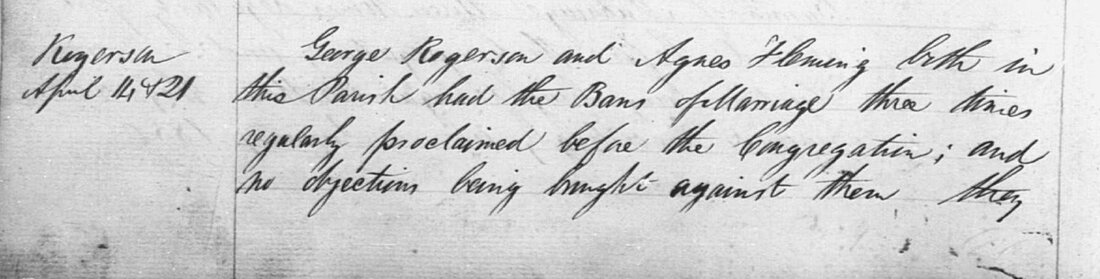 Rogerson
April 14 & 21
George Rogerson and Agnes Fleming both in
this Parish had the Bans of Marriage three times
regularly proclaimed before the Congregation; and
no objections being brought against them they